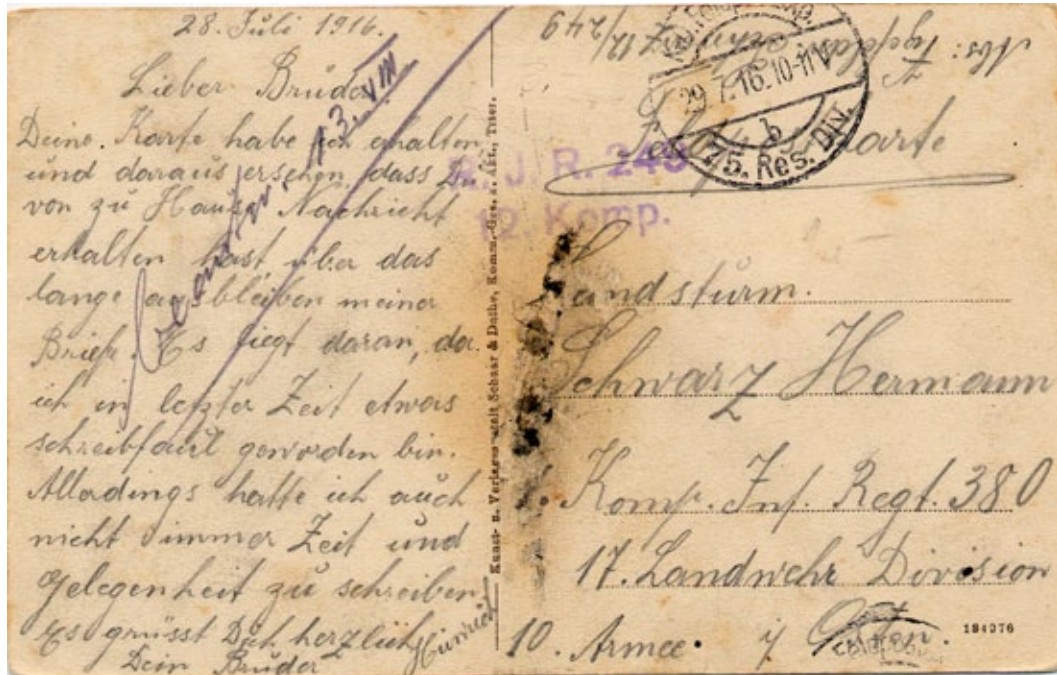 28. Juli 1916.
Lieber Bruder
Deine Karte habe ich erhalten
und daraus ersehen, dass Du
von zu Hause Nachricht
erhalten hast über das
lange ausbleiben meiner
Briefe. Es liegt daran, da
ich in letzter Zeit etwas
schreibfaul geworden bin.
Allerdings hatte ich auch
nicht immer Zeit und
Gelegenheit zu schreiben
Es grüsst Dich herzlich
Dein Bruder
Heinrich
13. VIII
Kunst- u. Verlagsanstalt Schaar & Dathe, Komm.-Ges. a. Akt., Trier.
Abs: 12/249
29.7.16.10-11V.
b
75. Res. Div.
R. J. R. 249
12. Komp.
Landsturm.
Schwarz Hermann
Komp. Inf. Regt. 380
17. Landwehr Division
10. Armee. i/ Osten.
184076